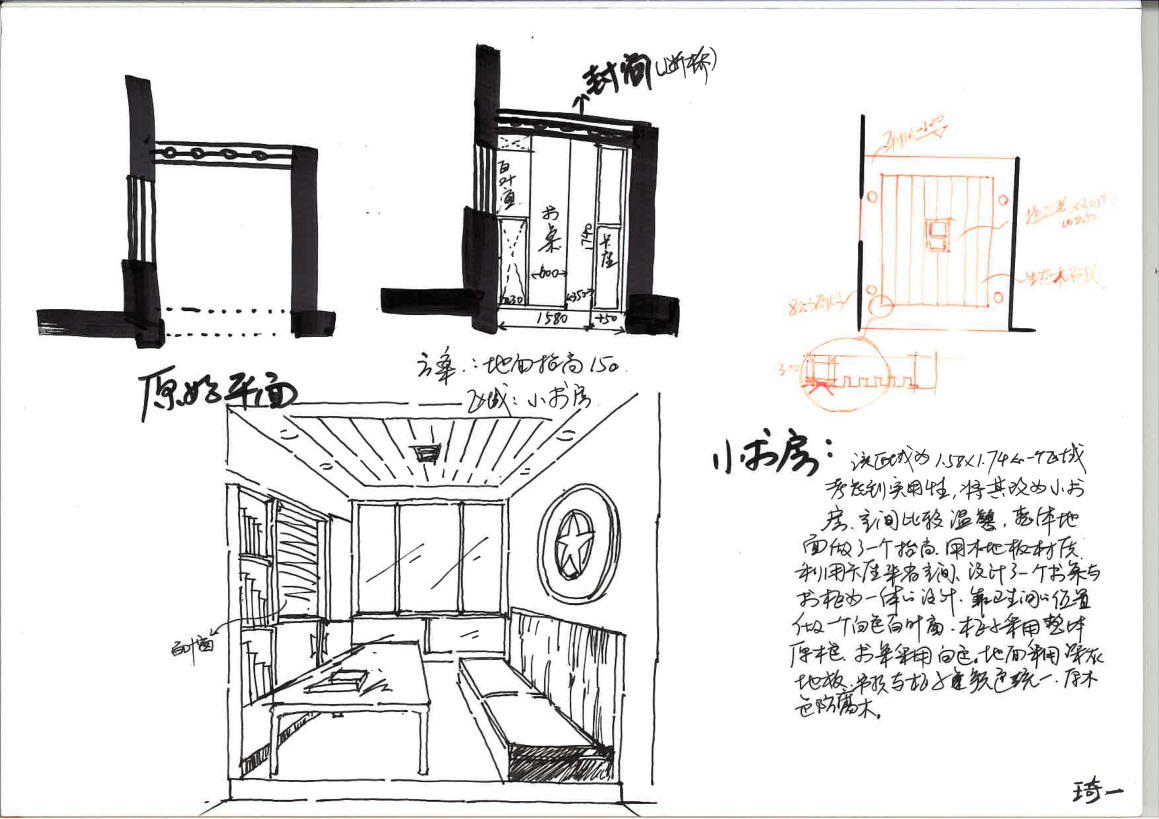 封窗(断桥)
百叶窗
书桌
卡座
1740
600
350
230
1580
450
原始平面
方案:地面抬高150.
区域:小书房
百叶窗
300
小书房:
该区域为1.58×1.74的一个区域
考虑到实用性,将其改为小书
房、空间比较温馨,整体地
面做了一个抬高.用木地板材质.
利用卡座节省空间、设计了一个书桌与
书柜为一体的设计.靠卫生间的位置
做一个白色百叶窗.柜子采用整体
原木色、书桌采用白色。地面采用深灰
地板.吊顶与柜子颜色统一.原木
色防腐木。
琦一